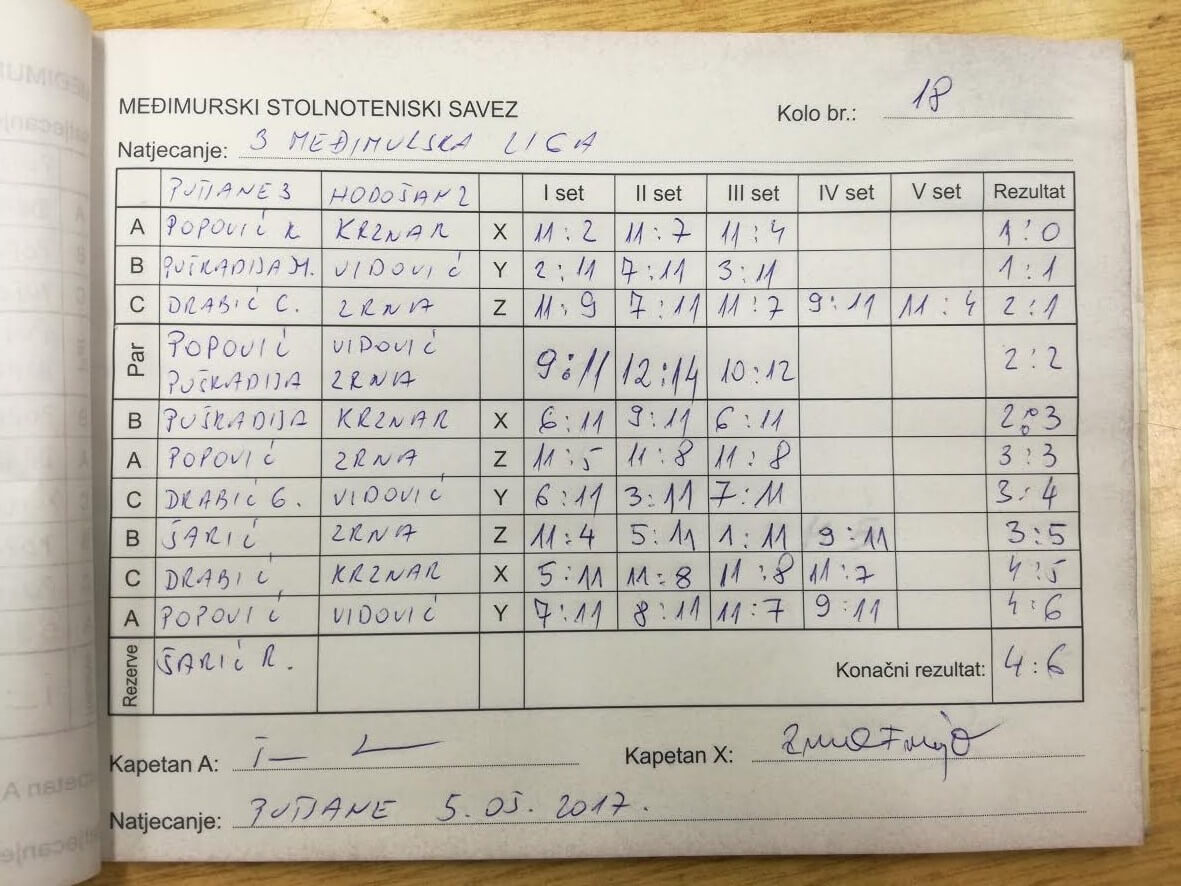 MEĐIMURSKI STOLNOTENISKI SAVEZ
Kolo br.: 18
Natjecanje: 3 MEĐIMURSKA LIGA
PUŠĆANE 3 HODOŠAN 2 I set II set III set IV set V set Rezultat
A POPOVIĆ K KRZNAR X 11:2 11:7 11:4 1:0
B PUŠKADIJA M. VIDOVIĆ Y 2:11 7:11 3:11 1:1
C DRABIĆ G. ZRNA Z 11:9 7:11 11:7 9:11 11:4 2:1
Par POPOVIĆ VIDOVIĆ 9:11 12:14 10:12 2:2
PUŠKADIJA ZRNA
B PUŠKADIJA KRZNAR X 6:11 9:11 6:11 2:3
A POPOVIĆ ZRNA Z 11:5 11:8 11:8 3:3
C DRABIĆ G. VIDOVIĆ Y 6:11 3:11 7:11 3:4
B ŠARIĆ ZRNA Z 11:4 5:11 1:11 9:11 3:5
C DRABIĆ KRZNAR X 5:11 11:8 11:8 11:7 4:5
A POPOVIĆ VIDOVIĆ Y 7:11 8:11 11:7 9:11 4:6
Rezerve ŠARIĆ R. Konačni rezultat: 4:6
Kapetan A: Kapetan X:
Natjecanje: 5.05.2017.